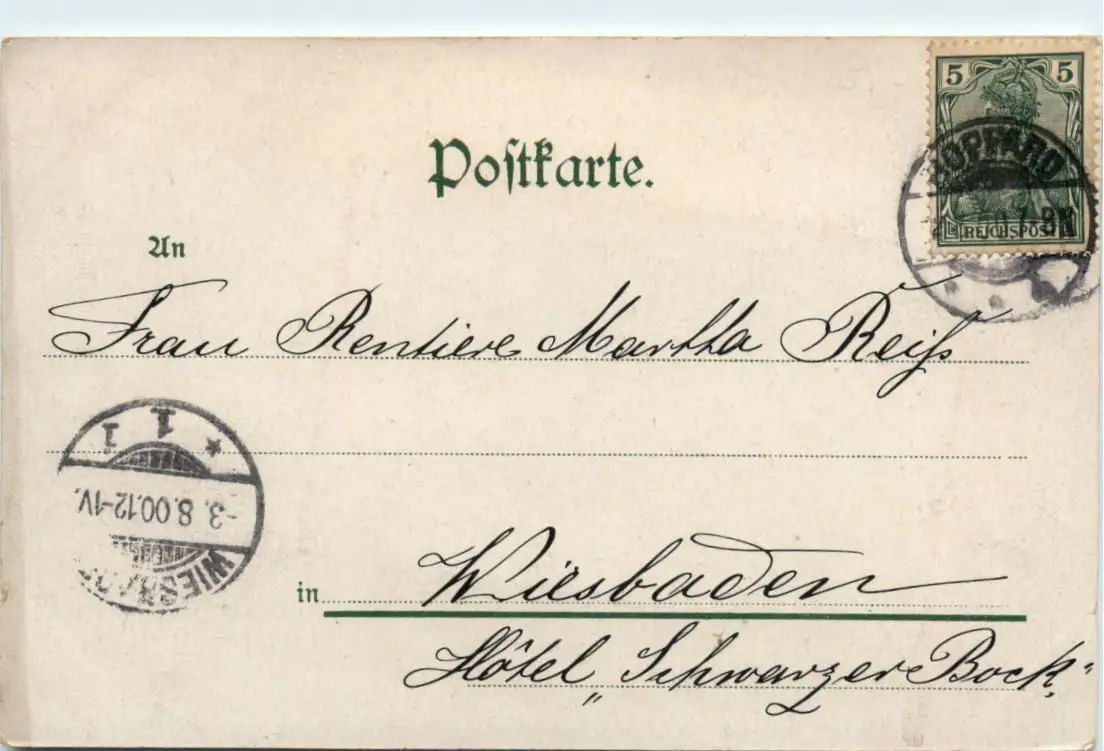 Postkarte.
5 5
BOPPARD
7-8N
REICHSPOST
An
Frau Rentiere Martha Reiß
* 1. 1
-3.8.00.12-1V.
WIESBADEN
in Wiesbaden
Hôtel „Schwarzer Bock“